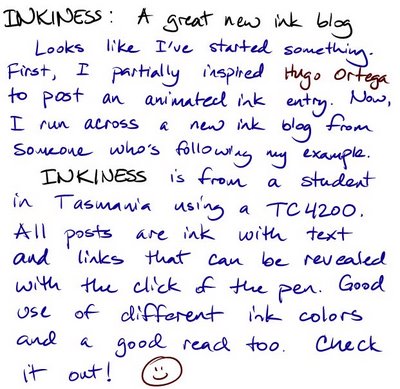 INKINESS: A great new ink blog
Looks like I've started something.
First, I partially inspired Hugo Ortega
to post an animated ink entry. Now,
I run across a new ink blog from
someone who's following my example.
INKINESS is from a student
in Tasmania using a TC4200.
All posts are ink with text
and links that can be revealed
with the click of the pen. Good
use of different ink colors
and a good read too. Check
it out!